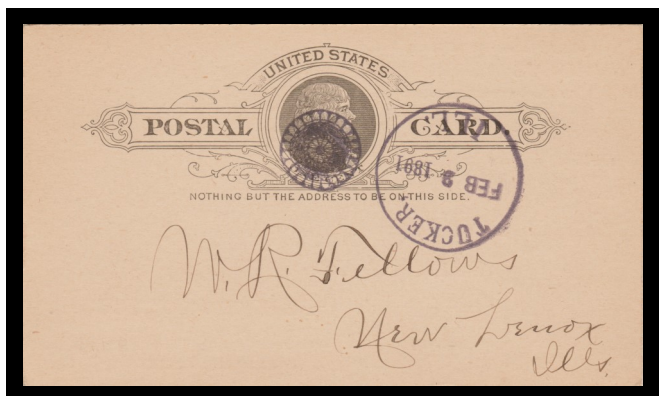 UNITED STATES
POSTAL CARD.
NOTHING BUT THE ADDRESS TO BE ON THIS SIDE.
TUCKER
FEB 2
1891
ILL.
W. R. Fellows
New Lenox
Ills.